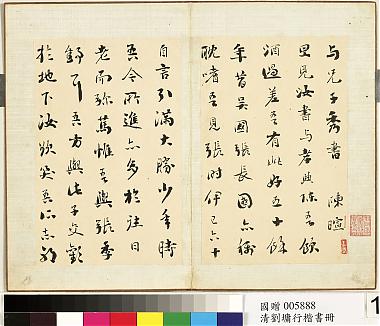 与兄子秀書 陳暄
具見汝書与孝典陳吾飲
酒過差吾有此好五十餘
年昔吳國張長公亦称
耽嗜吾見張时伊已六十
自言引滿大勝少年時
吾今所進亦多於往日
老而弥篤惟吾與張季
舒耳吾方與此子交歡
於地下汝欲夭吾所志邪
國贈 005888
清劉墉行楷書冊
1